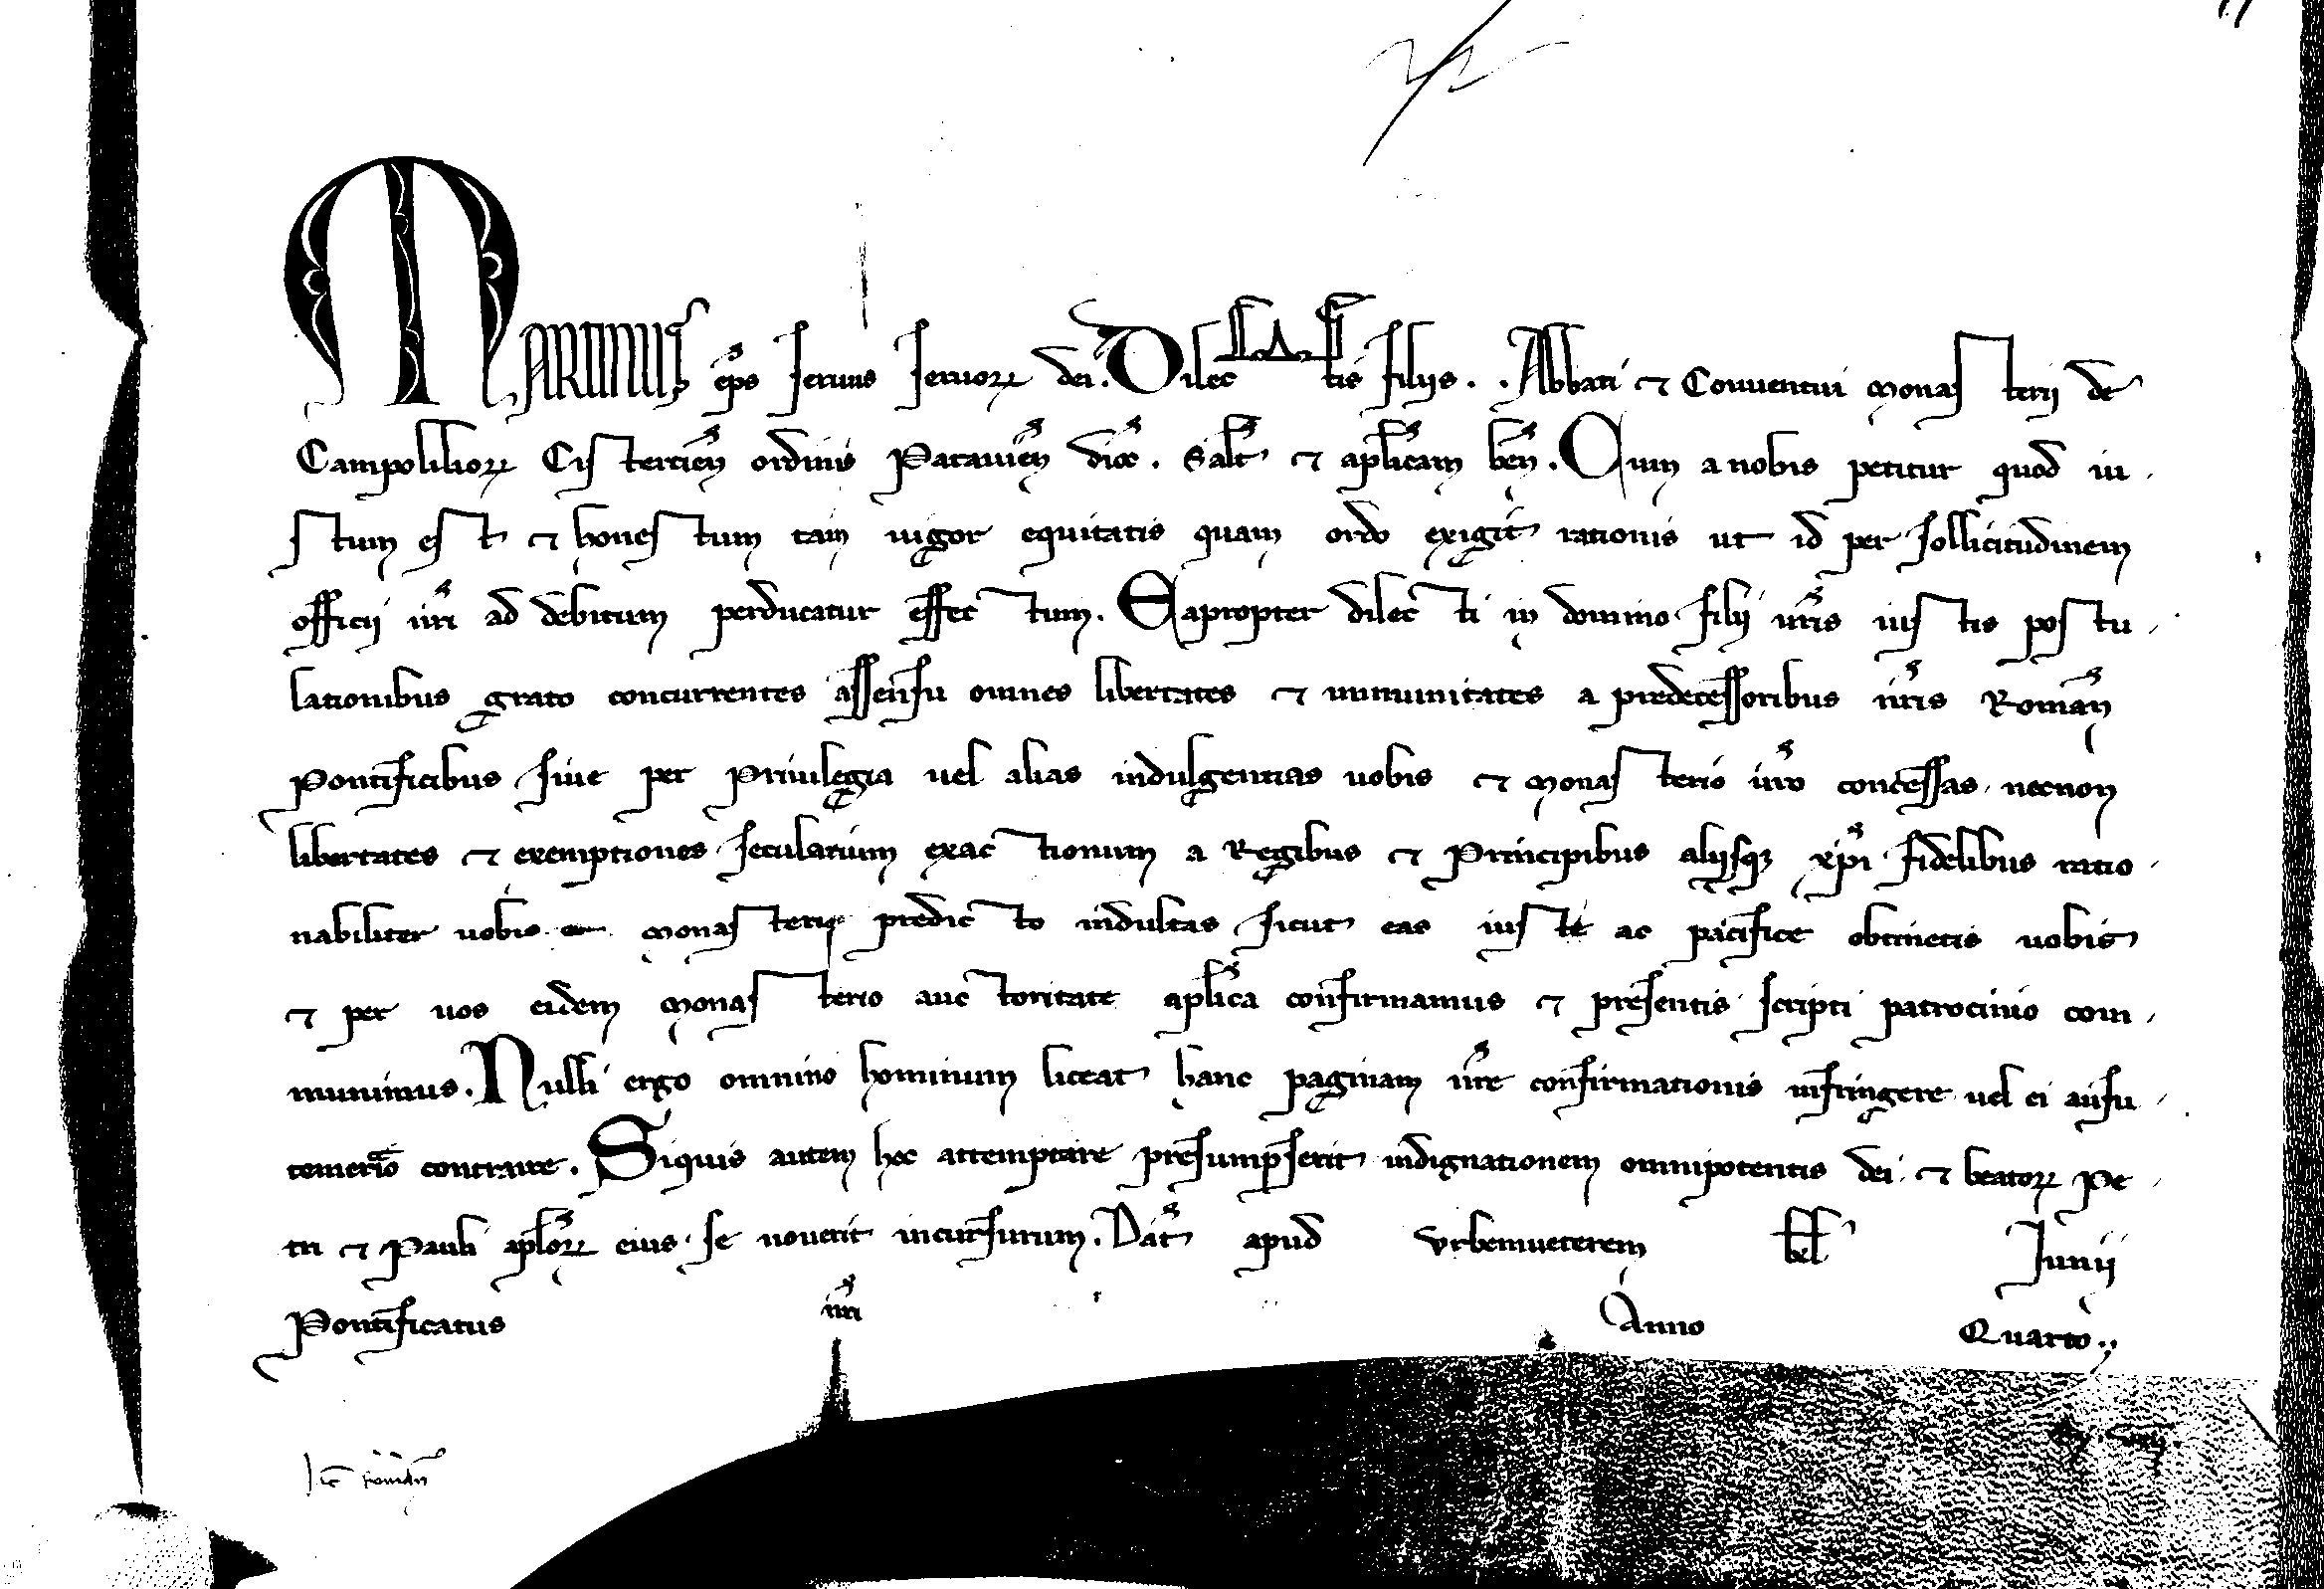 MARTINUS ep̄s seruus seruoꝝ dei. Dilectis filiis. . Abbati ⁊ Conuentui Monasterii de
Campoliliorꝝ Cistercień ordinis Patauień dioc̄. Salt̄ ⁊ apl̄icam ben̄. Cum a nobis petitur quod iu-
stum est ⁊ honestum tam uigor equitatis quam ordo exigit rationis ut id per sollicitudinem
officii nr̄i ad debitum perducatur effectum. Eapropter dilecti in domino filii ur̄is iustis postu-
lationibus grato concurrentes assensu omnes libertates ⁊ immunitates a predecessoribus nr̄is Roman̄
Pontificibus siue per Priuilegia uel alias indulgentias uobis ⁊ Monasterio ur̄o concessas, necnon
libertates ⁊ exemptiones secularium exactionum a Regibus ⁊ Principibus aliisqꝫ xp̄i fidelibus ratio-
nabiliter uobis Monasterio predicto indultas sicut eas iuste ac pacifice obtinetis uobis
⁊ per uos eidem Monasterio auctoritate apl̄ica confirmamus ⁊ presentis scripti patrocinio com-
munimus. Nulli ergo omnino hominum liceat hanc paginam nr̄e confirmationis infringere uel ei ausu
temerāio contraire. Siquis autem hoc attemptare presumpserit indignationem omnipotentis dei ⁊ beatoꝝ Pe-
tri ⁊ Pauli apl̄oꝝ eius se nouerit incursurum. Dat̄ apud Vrbemueterem kl̄ Iunii
Pontificatus nr̄i Anno Quarto.,